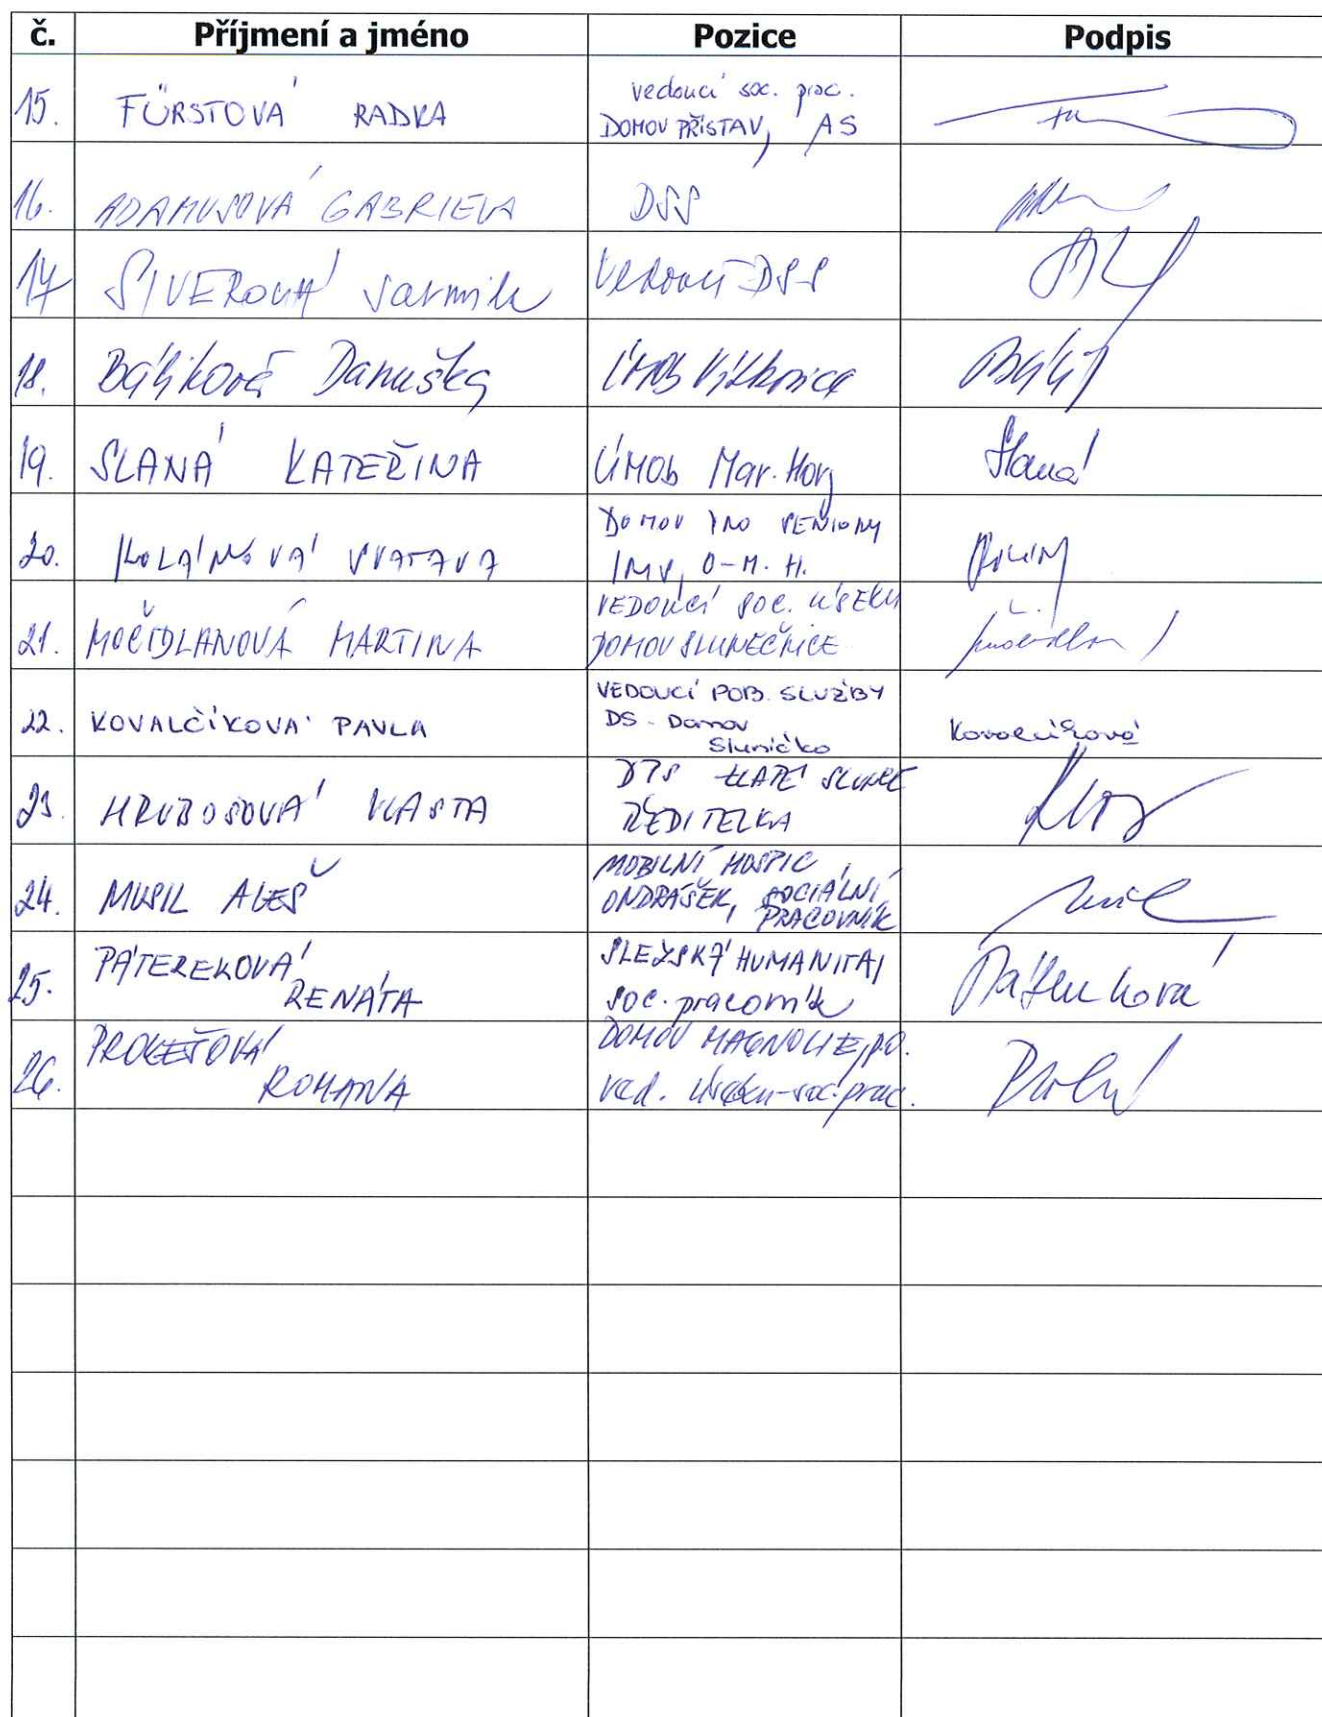 č. Příjmení a jméno Pozice Podpis
15. FÜRSTOVÁ RADKA vedoucí soc. prac.
DOMOV PŘÍSTAV, AS
16. ADAMUSOVÁ GABRIELA DSS
17 SIVEROVÁ Jarmila Vedoucí DSS
18. Bálíková Danuška ÚMOb Vítkovice
19. SLANÁ KATEŘINA ÚMOb Mar. Hory Slaná
20. KOLÁŘOVÁ SVATAVA DOMOV PRO SENIORY
O-M. H.
21. MOČIDLANOVÁ MARTINA VEDOUCÍ SOC. ÚSEKU
DOMOV SLUNEČNICE
22. KOVALČÍKOVÁ PAVLA VEDOUCÍ POB. SLUŽBY
DS - Domov
Sluníčko Kovalčíková
23. HRUBOSOVÁ VLASTA DPS ZLATÉ SLUNCE
ŘEDITELKA
24. MUSIL ALEŠ MOBILNÍ HOSPIC
ONDRÁŠEK, SOCIÁLNÍ
PRACOVNÍK
25. PÁTEREKOVÁ
RENÁTA SLEZSKÁ HUMANITA
soc. pracovník Páterková
26. PROKEŠOVÁ
ROMANA DOMOV MAGNOLIE, p.o.
ved. úseku-soc. prac.